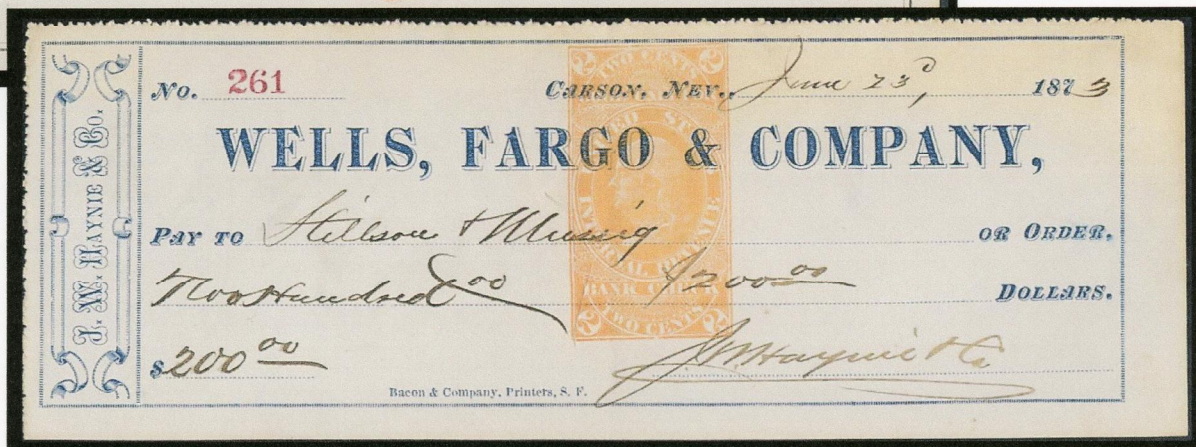 J. W. HAYNIE & CO.
No. 261 CARSON, NEV., June 23d, 1873
WELLS, FARGO & COMPANY,
PAY TO Stillson & Mussig OR ORDER,
Two Hundred & 00 $200 00 DOLLARS.
$200 00
J.W. Haynie & Co
Bacon & Company, Printers, S. F.
2 TWO CENTS 2
UNITED STATES
INTERNAL REVENUE
BANK CHECK
2 TWO CENTS 2